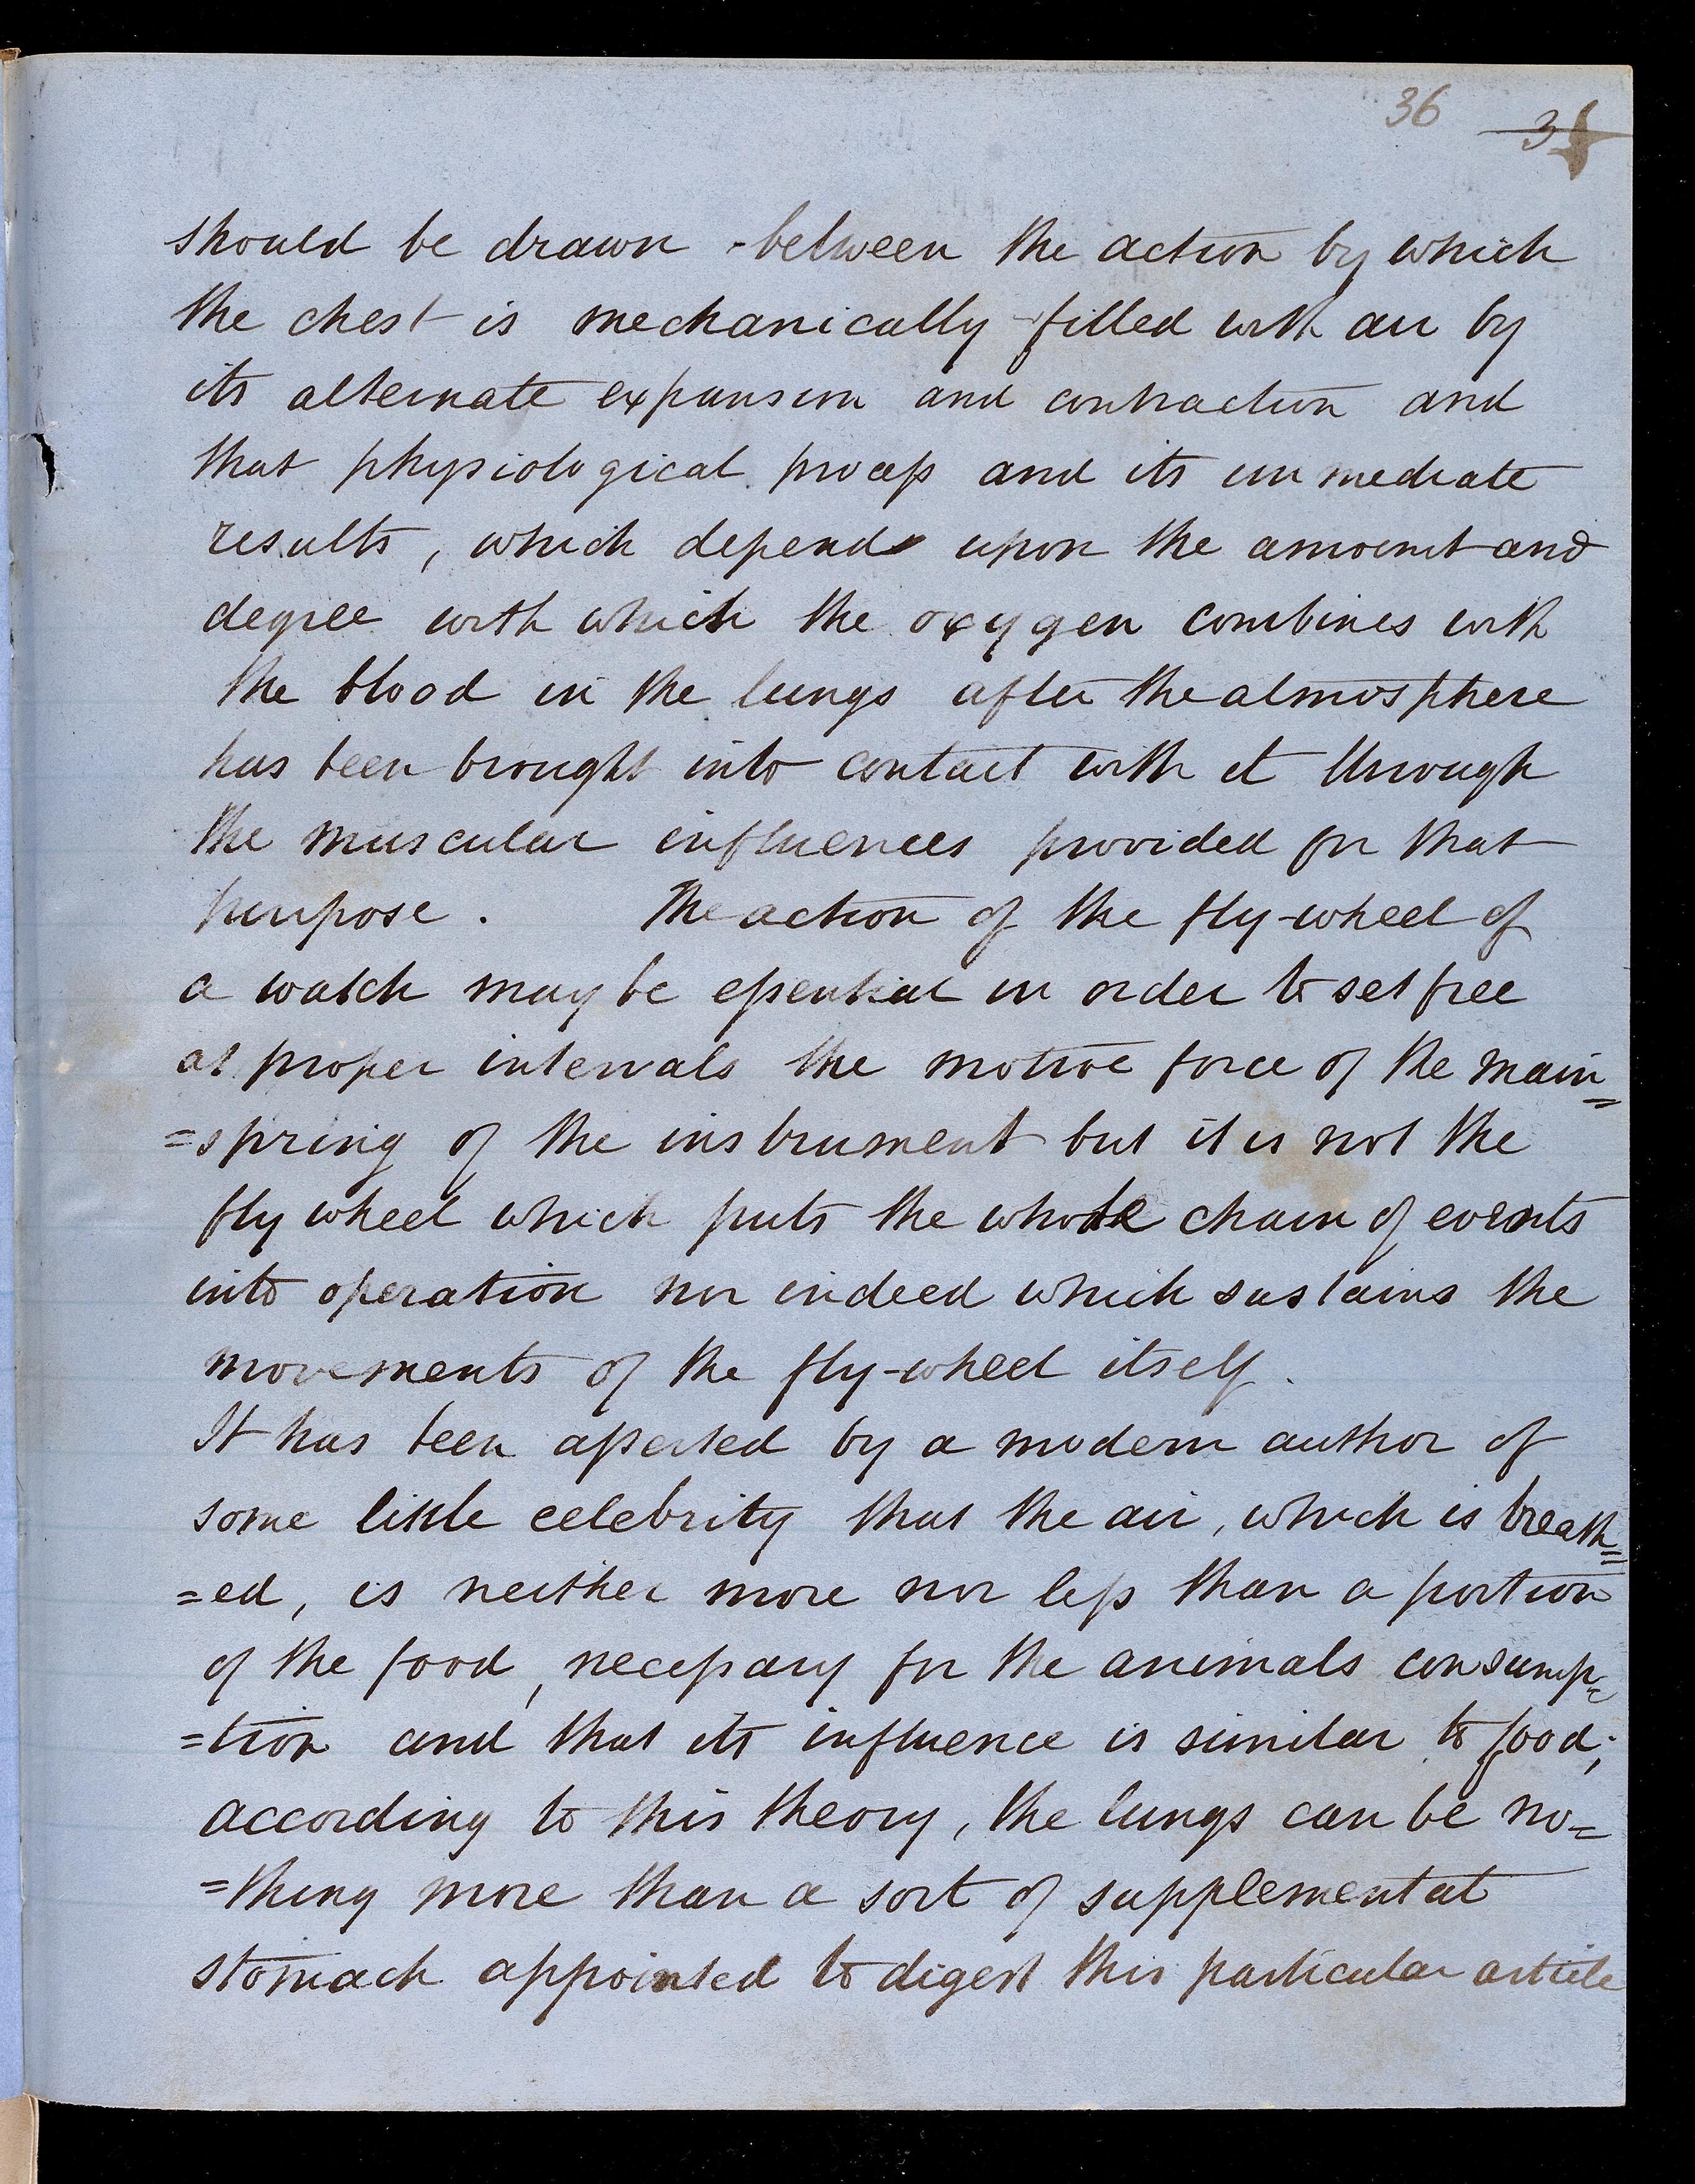 36
should be drawn - between the action by which
the chest is mechanically filled with air by
its alternate expansion and contraction and
that physiological process and its immediate
results, which depends upon the amount and
degree with which the oxygen combines with
the blood in the lungs after the atmosphere
has been brought into contact with it through
the muscular influences provided for that
purpose. The action of the fly-wheel of
a watch may be essential in order to set free
at proper intervals the motive force of the main=
=spring of the instrument but it is not the
fly wheel which puts the whole chain of events
into operation nor indeed which sustains the
movements of the fly-wheel itself.
It has been asserted by a modern author of
some little celebrity that the air, which is breath=
=ed, is neither more nor less than a portion
of the food, necessary for the animals consump=
=tion and that its influence is similar to food;
according to this theory, the lungs can be no=
=thing more than a sort of supplemental
stomach appointed to digest this particular article